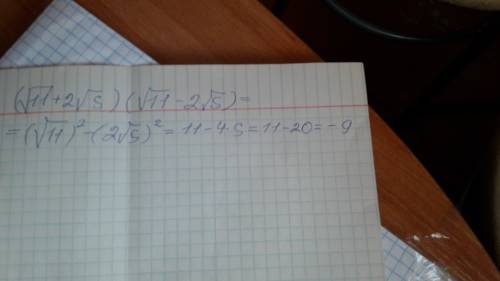 (√11+2√5)(√11-2√5)=
=(√11)²-(2√5)²=11-4·5=11-20=-9